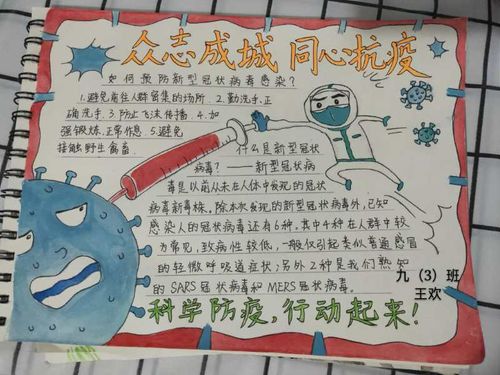 众志成城 同心抗疫
如何预防新型冠状病毒感染？
1.避免前往人群密集的场所 2.勤洗手、正
确洗手 3.防止飞沫传播 4.加
强锻炼、正常作息 5.避免
接触野生禽畜
什么是新型冠状
病毒？——新型冠状病
毒是以前从未在人体中发现的冠状
病毒新毒株。除本次发现的新型冠状病毒外，已知
感染人的冠状病毒还有6种。其中4种在人群中较
为常见，致病性较低，一般仅引起类似普通感冒
的轻微呼吸道症状；另外2种是我们熟知
的SARS冠状病毒和MERS冠状病毒。
九（3）班
王欢
科学防疫，行动起来！